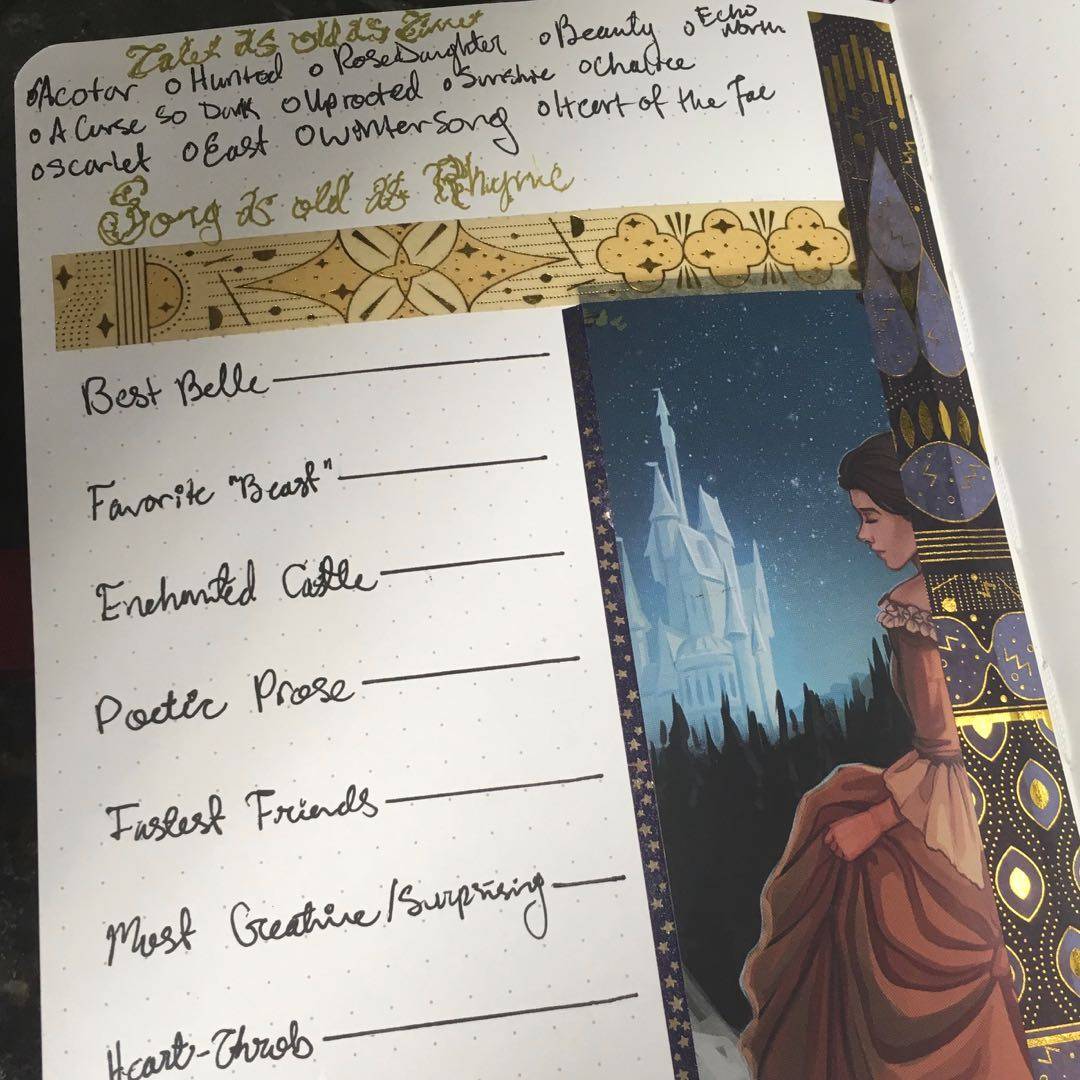 Tales as old as Time
o Acotar o Hunted o Rose Daughter o Beauty o Echo North
o A Curse So Dark o Uprooted o Sunshine o Chalice
o Scarlet o East o Wintersong o Heart of the Fae
Song as old as Rhyme
Best Belle
Favorite "Beast"
Enchanted Castle
Poetic Prose
Fastest Friends
Most Creative/Surprising
Heart-Throb